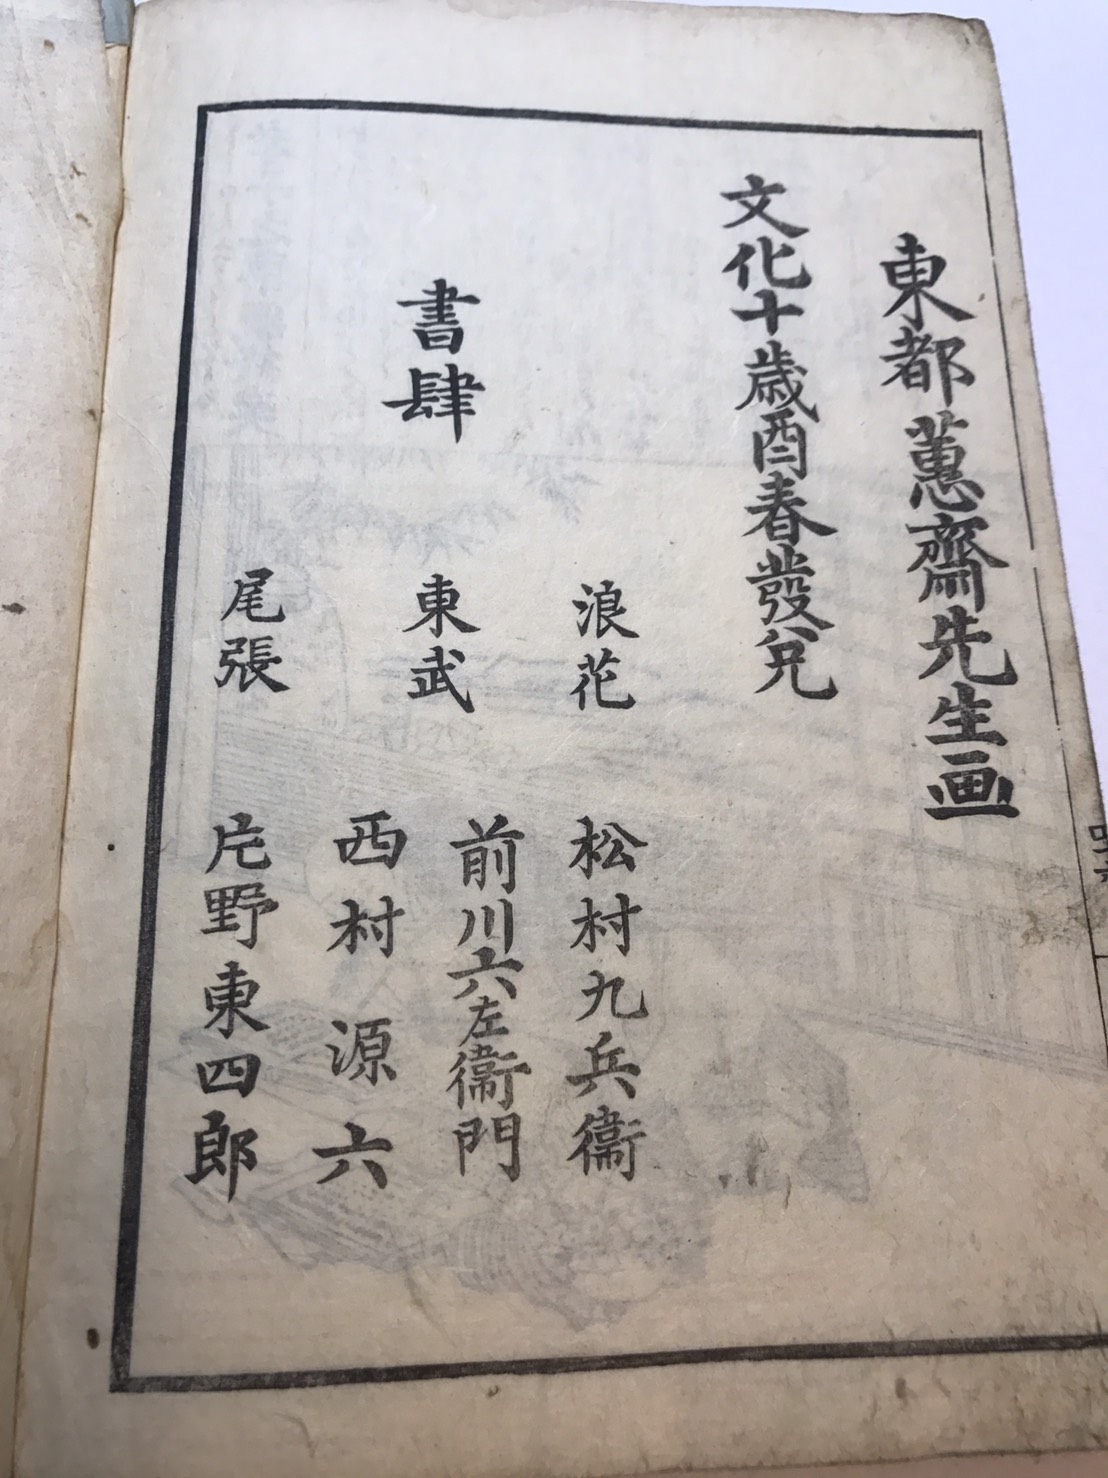 東都蕙齋先生画
文化十歳酉春發兌
書肆
浪花 松村九兵衞
東武 前川六左衞門
西村源六
尾張 片野東四郎